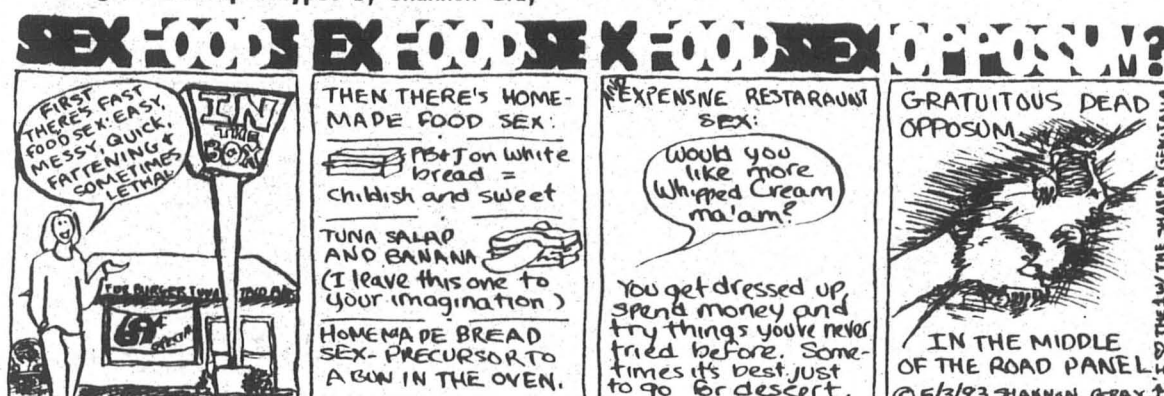 SEX FOODSEX FOODSEX FOODSEX OPPOSUM?
FIRST
THERE'S FAST
FOOD SEX: EASY,
MESSY, QUICK,
FATTENING &
SOMETIMES
LETHAL
IN
THE
BOX
69¢
SPECIAL
THEN THERE'S HOME-
MADE FOOD SEX:
PB+J on white
bread =
childish and sweet
TUNA SALAD
AND BANANA
(I leave this one to
your imagination)
HOMEMADE BREAD
SEX - PRECURSOR TO
A BUN IN THE OVEN.
EXPENSIVE RESTARAUNT
SEX:
Would you
like more
Whipped Cream
ma'am?
You get dressed up,
spend money and
try things you've never
tried before. Some-
times it's best just
to go for dessert.
GRATUITOUS DEAD
OPPOSUM
IN THE MIDDLE
OF THE ROAD PANEL.
© 5/3/93 SHANNON GRAY